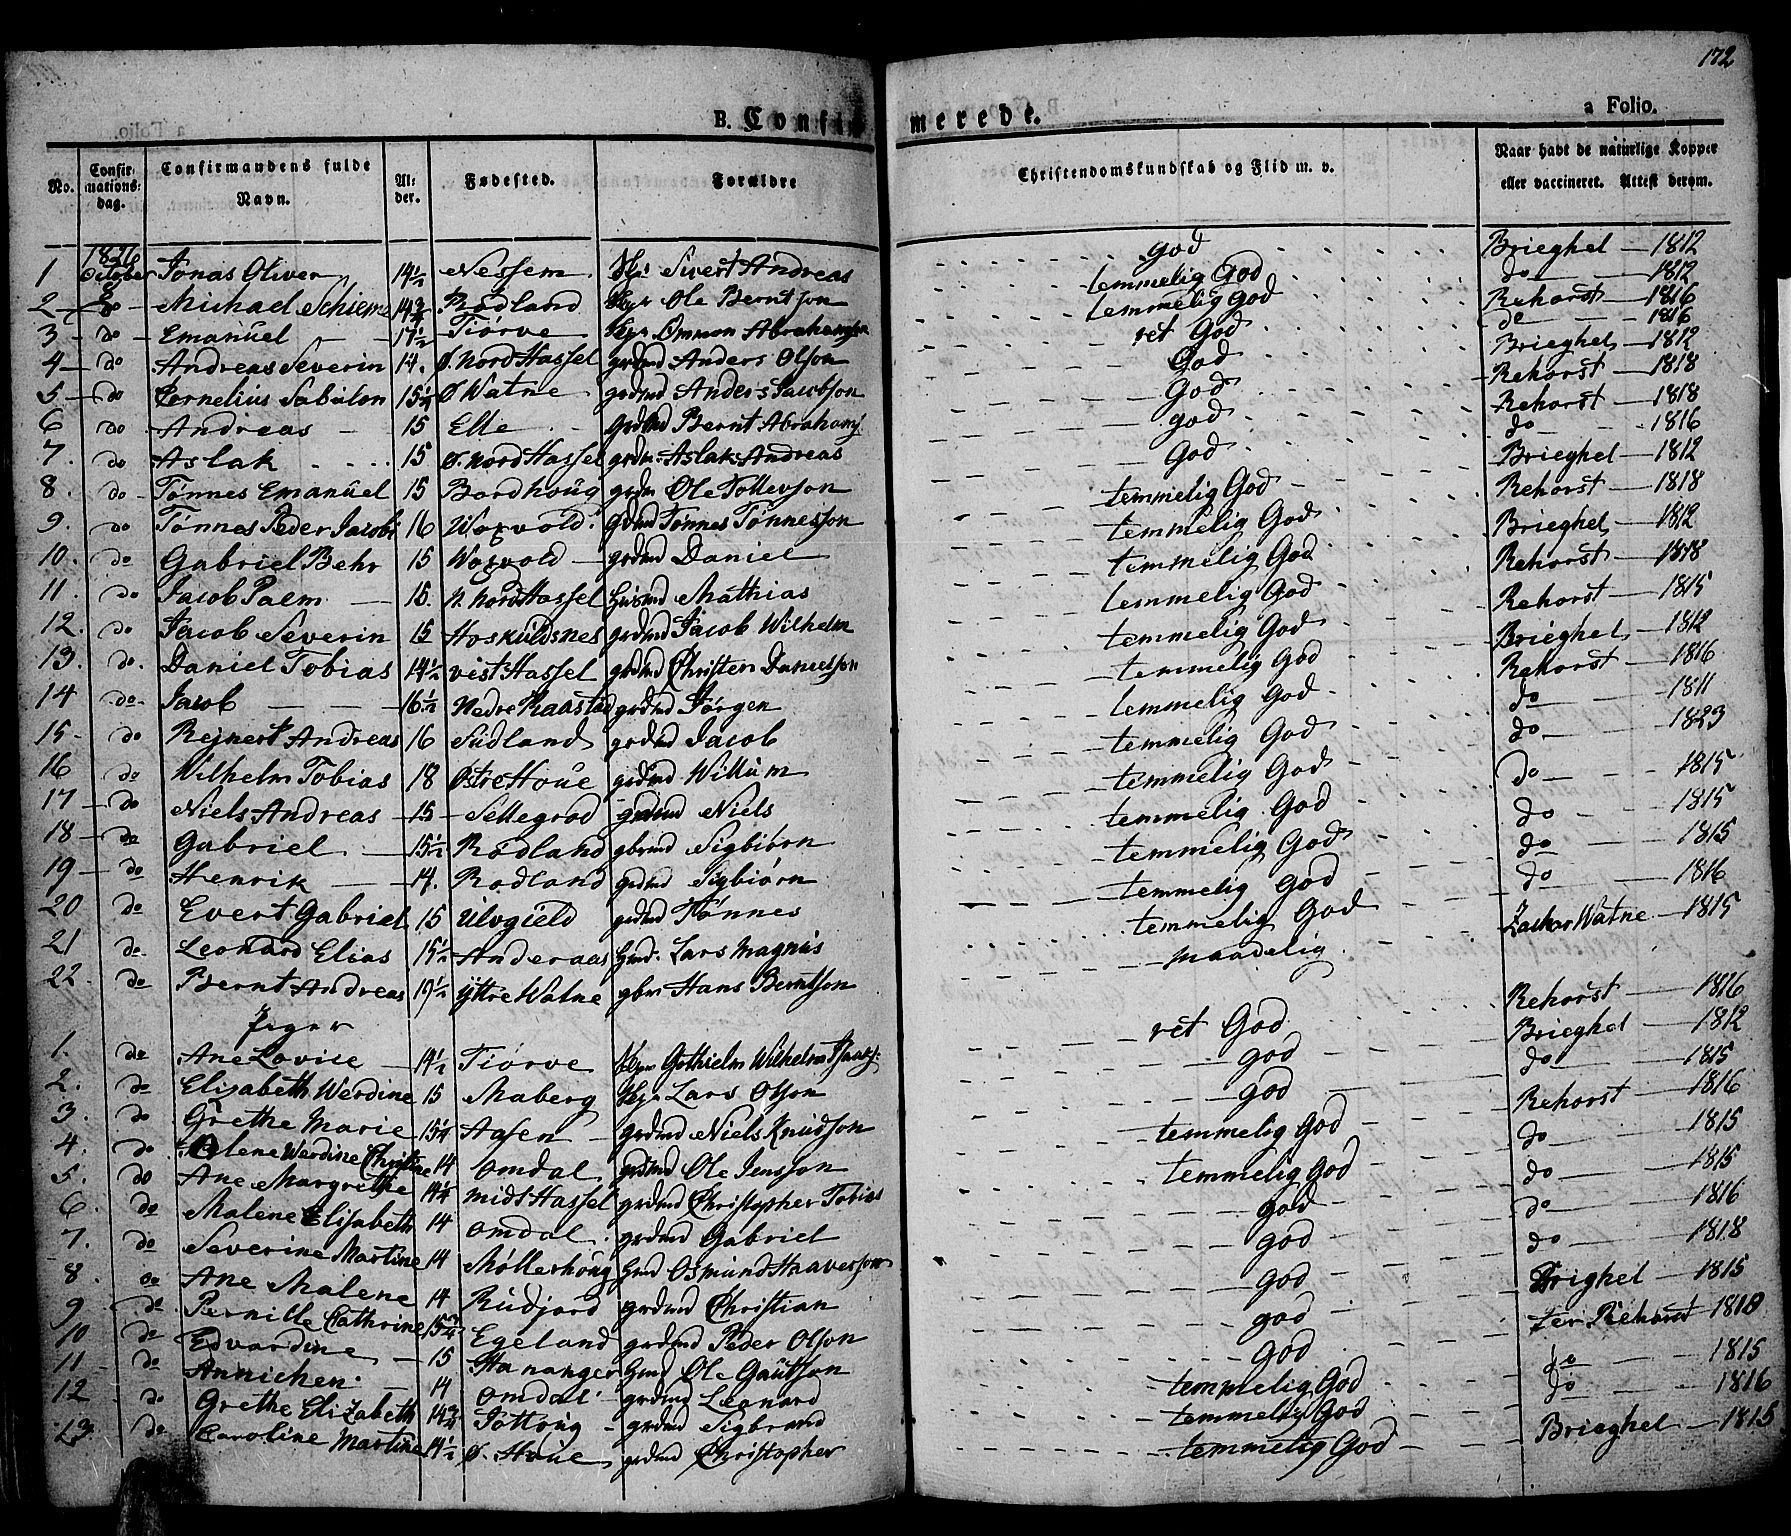 172
B. Confirmerede.
a Folio.
No. Confirmations-dag. Confirmandens fulde Navn. Alder. Fødested. Forældre Christendomskundskab og Flid m. v. Naar havt de naturlige Kopper eller vaccineret. Attest derom.
1826
1 October Jonas Oliver 14 1/2 Nessem Sivert Andreas god Brieghel 1812
2 8 Michael 14 3/4 Rødland Ole Berntson temmelig God do 1812
3 do Emanuel 17 1/2 Tiørve Ommon Abrahamson temmelig God Rehorst 1816
4 do Andreas Severin 14. Ø. Nord Hassel grdmd Anders Olson ret God do 1816
5 do Cornelius Sabulon 15 1/4 Ø Watne grdmd Anders Jacobson God Brieghel 1812
6 do Andreas 15 Elle grdmd Bernt Abrahams God Rehorst 1818
7. do Aslak 15 Ø. Nord Hassel grdm: Aslak Andreas god Rehorst 1818
8. do Tønnes Emanuel 15 Bordhoug grdm Ole Tollevson God do 1816
9. do Tønnes Peder Jacob 16 Woxvold grdmd Tønnes Tønnesson temmelig God Brieghel 1812
10. do Gabriel Behr 15 Woxvold grdmd Daniel temmelig God Rehorst 1818
11. do Jacob Palm 15. N. Nord Hassel Huusmd Mathias temmelig God Brieghel 1812
12. do Jacob Severin 15 Hoskuldsnes grdmd Jacob Wilhelm temmelig God Rehorst 1818
13. do. Daniel Tobias 14 1/2 vest Hassel grdmd Christen Danielsson temmelig God Rehorst 1815
14 do Jacob 16 1/2 Nedre Raastad grdmd Jørgen temmelig God Brieghel 1812
15 do Rejnert Andreas 16 Sudland grdmd Jacob temmelig God Rehorst 1816
16 do Wilhelm Tobias 18 Østre Houe grdmd Willum temmelig God do 1811
17 do Niels Andreas 15 Sellegrod grdmd Niels temmelig God do 1823
18 do Gabriel 15 1/2 Rødland gbrmd Sigbiørn temmelig God do 1815
19 do Henrik 14. Rødland grdmd Sigbiørn temmelig God do 1815
20 do Evert Gabriel 15 Ulvgield grdmd Tønnes temmelig God do 1815
21 do Leonard Elias 15 1/2 Anderaas Hmd: Lars Magnus temmelig God do 1816
22. do Bernt Andreas 19 1/2 ÿttre Watne gbm Hans Berntson maadelig Watne 1815
Piger
1. do Ane Lovise 14 1/2 Tiørve Gothielm Wilhelm ret God Rehorst 1816
2. do Elizabeth Werdine 15 Maberg Lars Olson god Brieghel 1812
3. do Grethe Marie 15 1/4 Aasen grdmd Niels Knudson god do 1815
4. do Malene Werdine Christine 14 Omdal grdmd Ole Jensson temmelig God Rehorst 1816
5. do Ane Margrethe 14 1/4 midt Hassel grdmd Christopher Tobias temmelig God do 1815
6. do Malene Elisabeth 14 Omdal grdmd Gabriel god do 1815
7. do Severine Martine 14 Møllerhoug Hmd Osmund Haaverson god do 1816
8. do Ane Malene 14 Rudjord grdmd Christian god do 1818
9 do Pernille Cathrine 15 Egeland grdmd Peder Olson god Brighel 1815
10 do Edvardine 15 Hananger Hmd Ole Gautson God Rehorst 1818
11 do Annichen 14 Omdal grdmd Leonard temmelig God do 1815
12 do Grethe Elizabeth 14 3/4 Jøttoug grdmd Sigbrand temmelig God do 1816
13 do Caroline Martine 14 1/2 Ø. Houe grdmd Christopher temmelig God Brieghel 1815